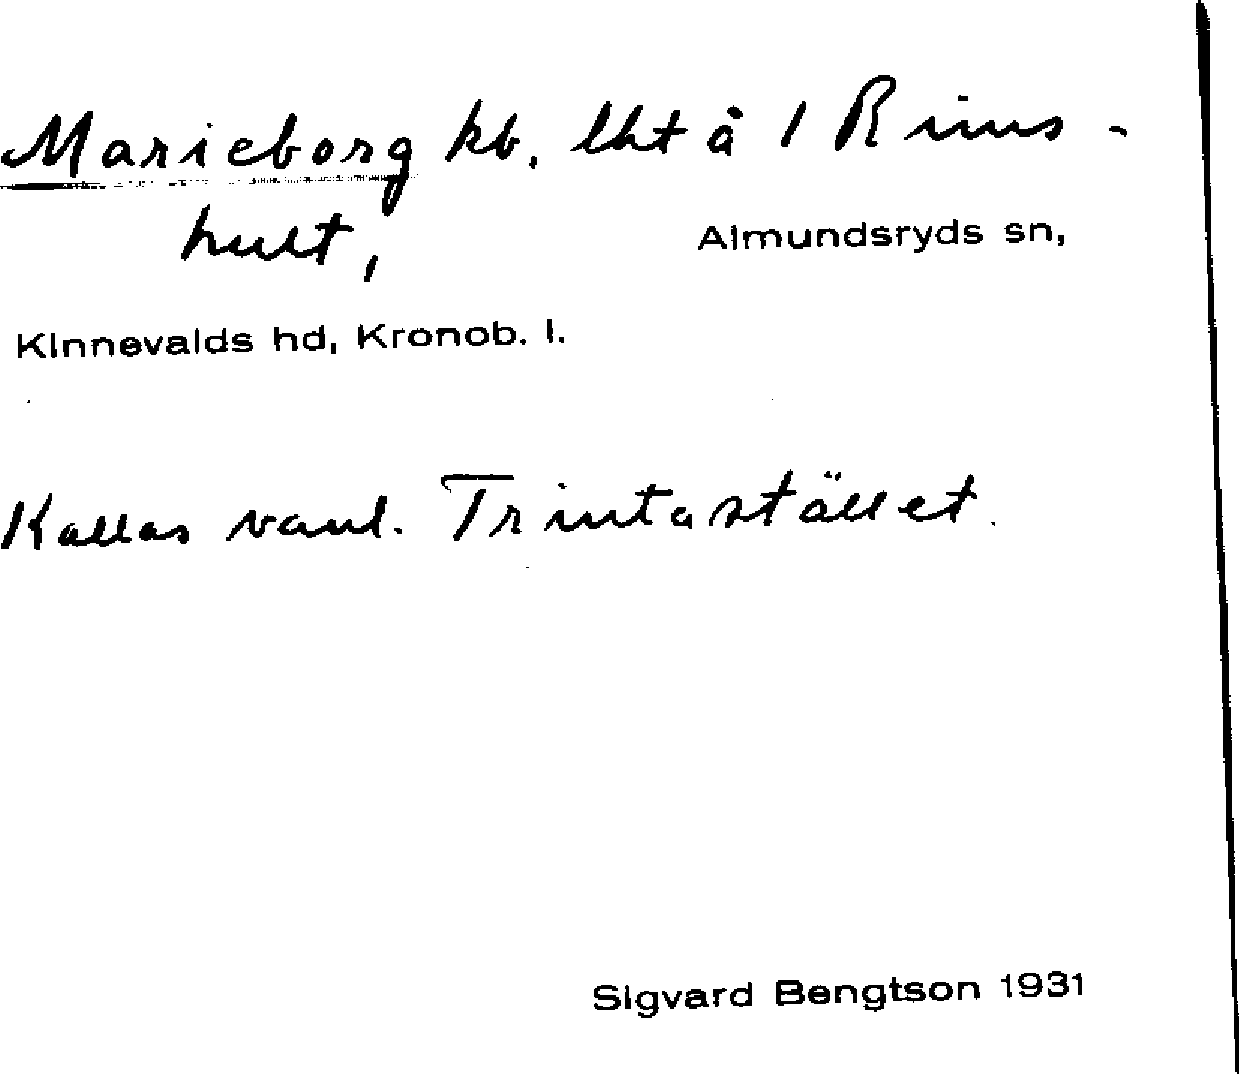 Marieborg kb. lht å 1 Rims-
hult,
Almundsryds sn,
Kinnevalds hd, Kronob. l.
Kallas vanl. Trintastället.
Sigvard Bengtson 1931